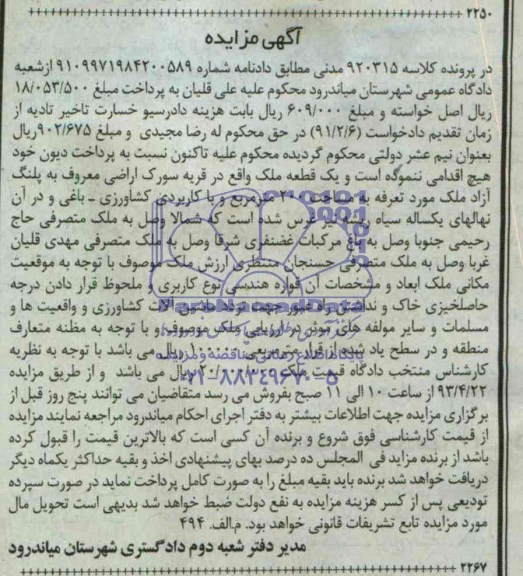 ۲۲۵۰
آگهی مزایده
در پرونده کلاسه ۹۲۰۳۱۵ مدنی مطابق دادنامه شماره ۹۱۰۹۹۷۱۹۸۴۲۰۰۵۸۹ ازشعبه
دادگاه عمومی شهرستان میاندرود محکوم علیه علی قلیان به پرداخت مبلغ ۱۸/۰۵۳/۵۰۰
ریال اصل خواسته و مبلغ ۶۰۹/۰۰۰ ریال بابت هزینه دادرسیو خسارت تاخیر تادیه از
زمان تقدیم دادخواست (۹۱/۲/۶) در حق محکوم له رضا مجیدی و مبلغ ۹۰۲/۶۷۵ریال
بعنوان نیم عشر دولتی محکوم گردیده محکوم علیه تاکنون نسبت به پرداخت دیون خود
هیچ اقدامی ننموده است و یک قطعه ملک واقع در قریه سورک اراضی معروف به پلنگ
آزاد ملک مورد تعرفه به مساحت مترمربع و با کاربردی کشاورزی ـ باغی و در آن
نهالهای یکساله سیاه ریشه نیز غرس شده است که شمالا وصل به ملک متصرفی حاج
رحیمی جنوبا وصل به باغ مرکبات غضنفری شرقا وصل به ملک متصرفی مهدی قلیان
غربا وصل به ملک متصرفی حسنجان منتظری ارزش ملک موصوف با توجه به موقعیت
مکانی ملک ابعاد و مشخصات آن قواره هندسی نوع کاربری و ملحوظ قرار دادن درجه
حاصلخیزی خاک و نداشتن راه عبور جهت تردد ماشین آلات کشاورزی و واقعیت ها و
مسلمات و سایر مولفه های موثر در ارزیابی ملک موصوف و با توجه به مظنه متعارف
منطقه و در سطح یاد شده از قرار مترمربعی ریال می باشد با توجه به نظریه
کارشناس منتخب دادگاه قیمت ملک ریال می باشد و از طریق مزایده
۹۳/۴/۲۲ از ساعت ۱۰ الی ۱۱ صبح بفروش می رسد متقاضیان می توانند پنج روز قبل از
برگزاری مزایده جهت اطلاعات بیشتر به دفتر اجرای احکام میاندرود مراجعه نمایند مزایده
از قیمت کارشناسی فوق شروع و برنده آن کسی است که بالاترین قیمت را قبول کرده
باشد از برنده مزاید فی المجلس ده درصد بهای پیشنهادی اخذ و بقیه حداکثر یکماه دیگر
دریافت خواهد شد برنده باید بقیه مبلغ را به صورت کامل پرداخت نماید در صورت سپرده
تودیعی پس از کسر هزینه مزایده به نفع دولت ضبط خواهد شد بدیهی است تحویل مال
مورد مزایده تابع تشریفات قانونی خواهد بود. م.الف. ۴۹۴
مدیر دفتر شعبه دوم دادگستری شهرستان میاندرود
۲۲۶۷
ParsNamadData
پایگاه اطلاع رسانی مناقصه و مزایده
۰۲۱-۸۸۳۴۹۶۷۰-۵